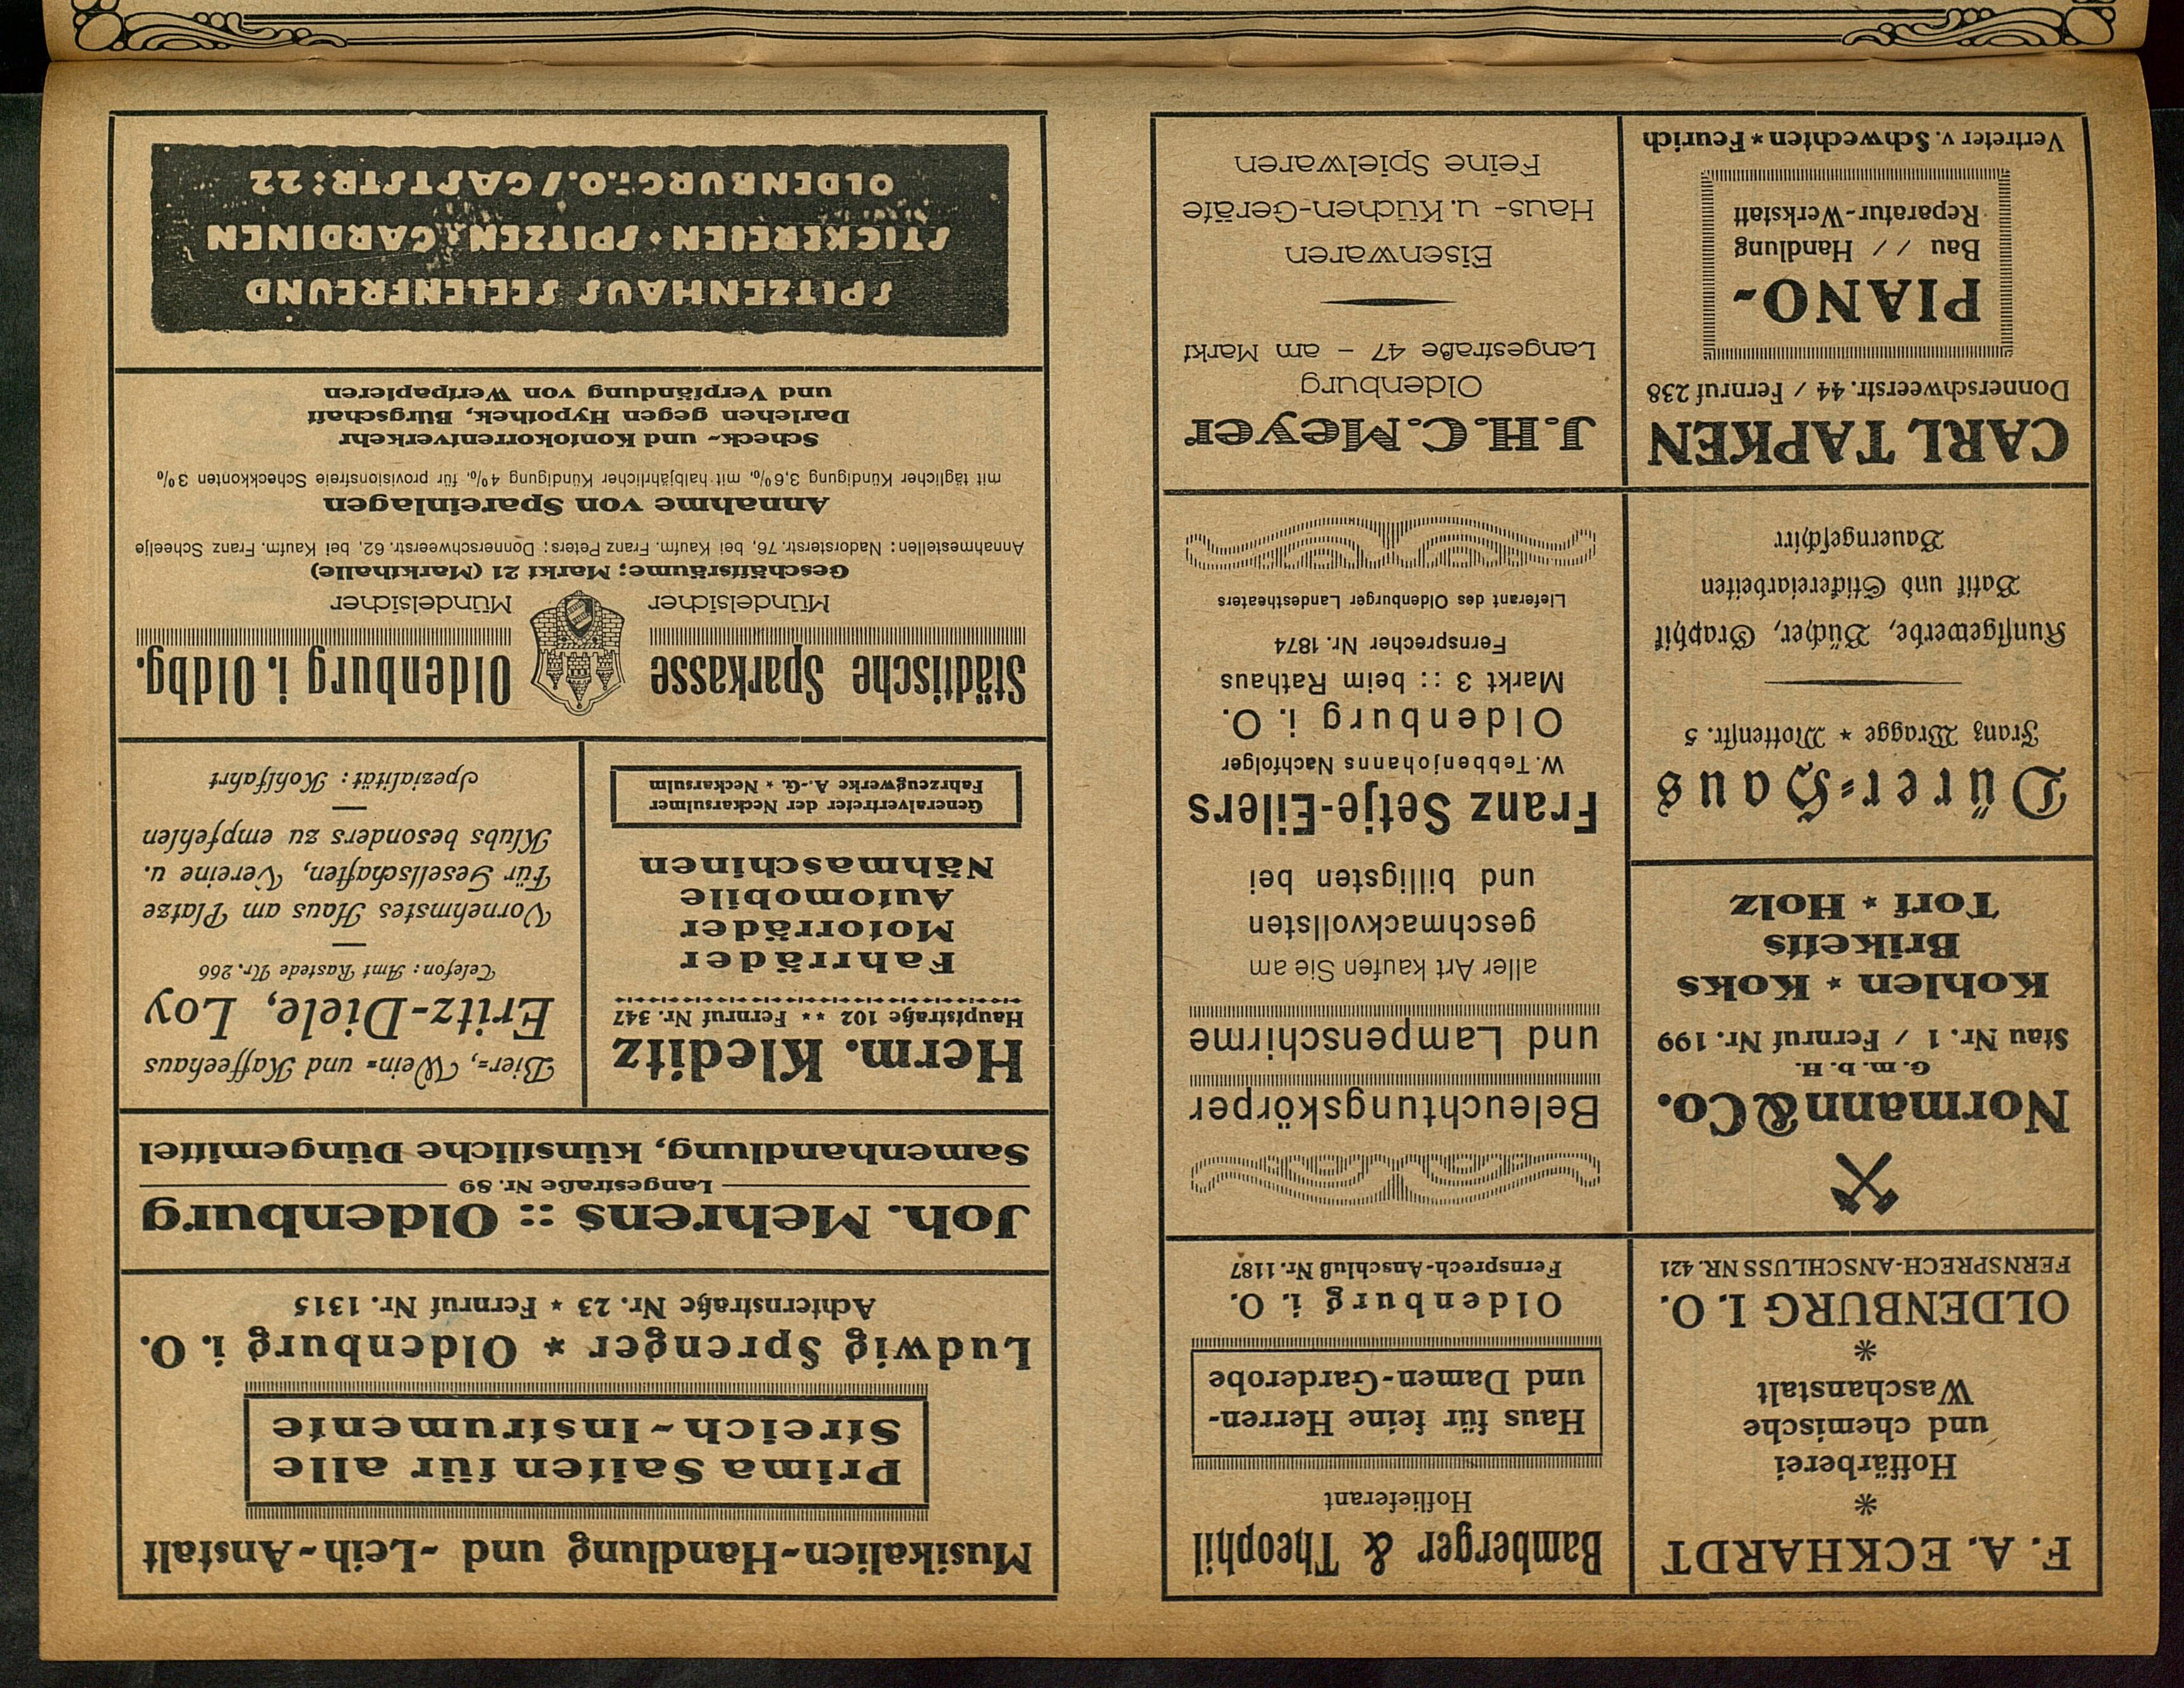 F. A. ECKHARDT
*
Hoffärberei
und chemische
Waschanstalt
*
OLDENBURG I. O.
FERNSPRECH-ANSCHLUSS NR. 421
Bamberger & Theophil
Hoflieferant
Haus für feine Herren-
und Damen-Garderobe
Oldenburg i. O.
Fernsprech-Anschluß Nr. 1187
Normann & Co.
G. m. b. H.
Stau Nr. 1 / Fernruf Nr. 199
Kohlen * Koks
Briketts
Torf * Holz
Beleuchtungskörper
und Lampenschirme
aller Art kaufen Sie am
geschmackvollsten
und billigsten bei
Franz Setje-Eilers
W. Tebbenjohanns Nachfolger
Oldenburg i. O.
Markt 3 :: beim Rathaus
Fernsprecher Nr. 1874
Lieferant des Oldenburger Landestheaters
Dürer-Haus
Franz Wragge * Mottenstr. 5
Kunstgewerbe, Bücher, Graphik
Batik und Stickereiarbeiten
Bauerngeschirr
CARL TAPKEN
Donnerschweerstr. 44 / Fernruf 238
PIANO-
Bau // Handlung
Reparatur-Werkstatt
Vertreter v. Schwechten * Feurich
J. H. C. Meyer
Oldenburg
Langestraße 47 – am Markt
Eisenwaren
Haus- u. Küchen-Geräte
Feine Spielwaren
Musikalien-Handlung und -Leih-Anstalt
Prima Saiten für alle
Streich-Instrumente
Ludwig Sprenger * Oldenburg i. O.
Achternstraße Nr. 23 * Fernruf Nr. 1315
Joh. Mehrens :: Oldenburg
Langestraße Nr. 89
Samenhandlung, künstliche Düngemittel
Herm. Kleditz
Hauptstraße 102 ** Fernruf Nr. 347
Fahrräder
Motorräder
Automobile
Nähmaschinen
Generalvertreter der Neckarsulmer
Fahrzeugwerke A.-G. * Neckarsulm
Bier-, Wein- und Kaffeehaus
Eritz-Diele, Loy
Telefon: Amt Rastede Nr. 266
Vornehmstes Haus am Platze
Für Gesellschaften, Vereine u.
Klubs besonders zu empfehlen
Spezialität: Kohlfahrt
Städtische Sparkasse Oldenburg i. Oldbg.
Mündelsicher Mündelsicher
Geschäftsräume: Markt 21 (Markthalle)
Annahmestellen: Nadorsterstr. 76, bei Kaufm. Franz Peters; Donnerschweerstr. 62, bei Kaufm. Franz Scheelje
Annahme von Spareinlagen
mit täglicher Kündigung 3,6%, mit halbjährlicher Kündigung 4%, für provisionsfreie Scheckkonten 3%
Scheck- und Kontokorrentverkehr
Darlehen gegen Hypothek, Bürgschaft
und Verpfändung von Wertpapieren
SPITZENHAUS SEELENFREUND
STICKEREIEN • SPITZEN • GARDINEN
OLDENBURG i. O. / GASTSTR: 22